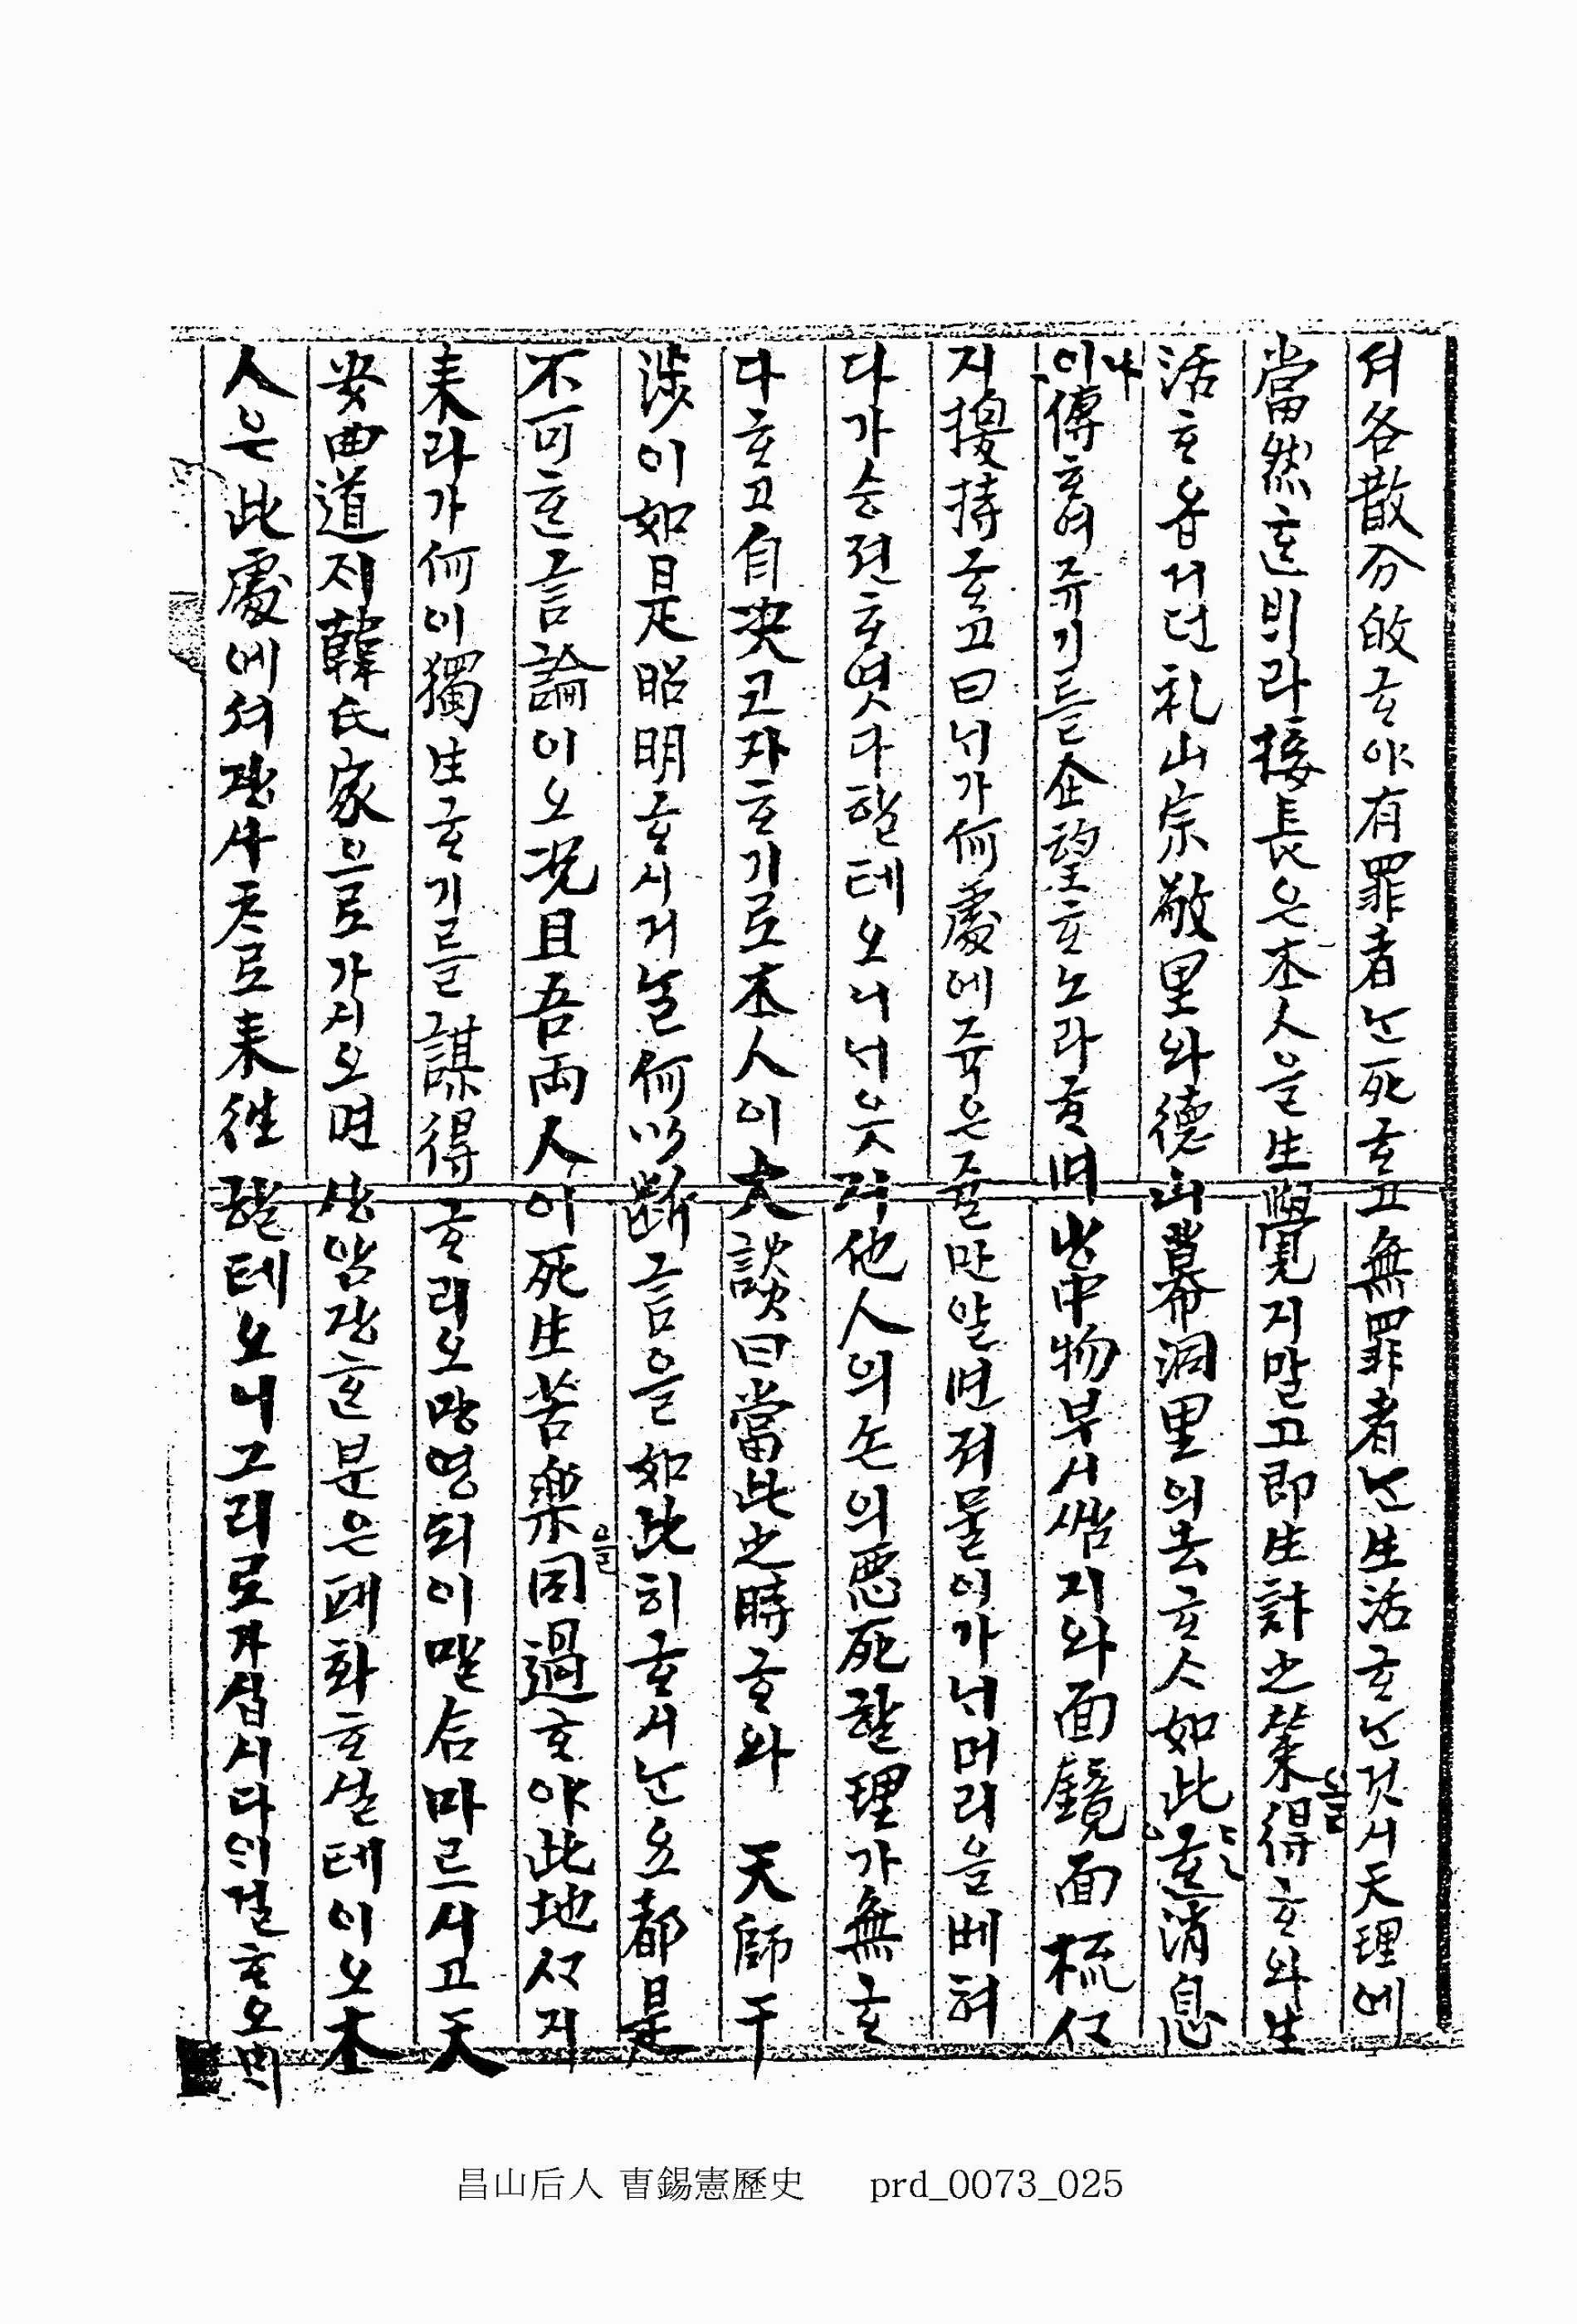 셔各散分做ᄒᆞ야有罪者ᄂᆞᆫ死ᄒᆞ고無罪者ᄂᆞᆫ生活ᄒᆞᄂᆞᆫ것시天理에
當然ᄒᆞᆫ비라接長은本人을生覺지말고即生計之策을得ᄒᆞ와生
活ᄒᆞ옵거던礼山宗敬里와德山幕洞里의去ᄒᆞᄉᆞ如此ᄒᆞᆫ消息
이나傳ᄒᆞ여쥬기를企望ᄒᆞ노라ᄒᆞ며出中物부시쌈지와面鏡面梳仅
지搜持ᄒᆞ고曰ᄂᆡ가何處에쥭은쥴만알면져물이가ᄂᆡ머리을베혀
다가승젼ᄒᆞ엿다할테오니ᄂᆡ읏지他人의손의惡死할理가無ᄒᆞ
다ᄒᆞ고自決코자ᄒᆞ기로本人이大談曰當此之時ᄒᆞ와 天師干
涉이如是昭明ᄒᆞ시거늘何以斷言을如此히ᄒᆞ시ᄂᆞᆫ요都是
不可ᄒᆞᆫ言論이오况且吾両人이死生苦樂을同過ᄒᆞ야此地ᄭᆞ지
来라가何이獨生ᄒᆞ기를謀得ᄒᆞ리오망영되이말合마르시고天
安曲道지韓氏家으로가시오면상암장ᄒᆞᆫ분은패화ᄒᆞ실테이오本
人은此處에셔장사죠로来徃할테오니그리로가십시다의걸ᄒᆞ오ᄆᆡ
昌山后人 曺錫憲歷史 prd_0073_025